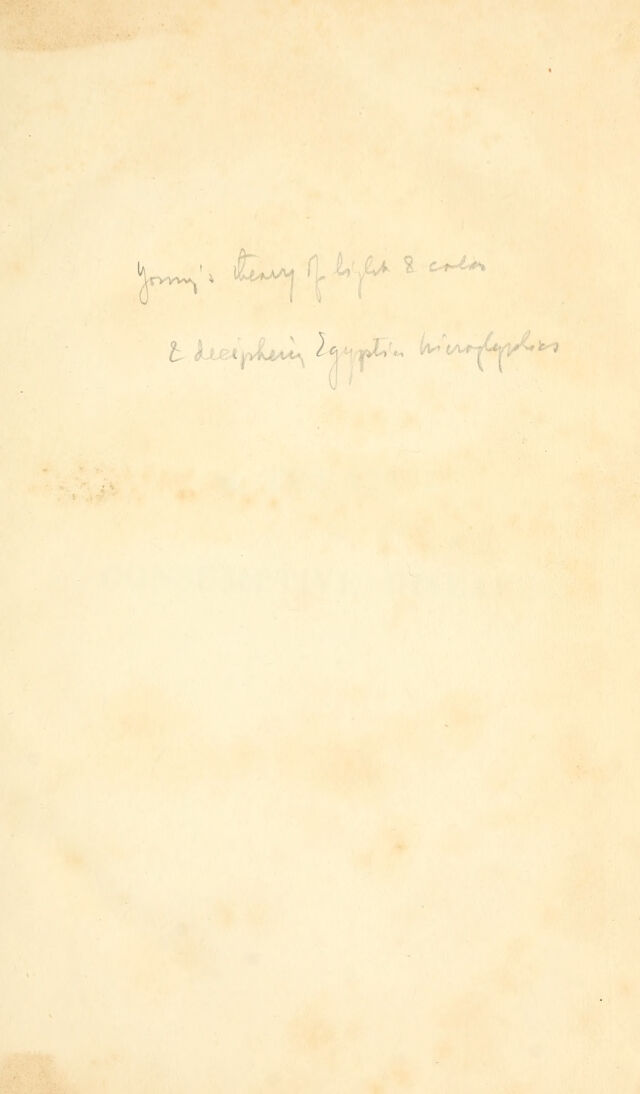 Young's theory of light & color
& deciphering Egyptian hieroglyphics